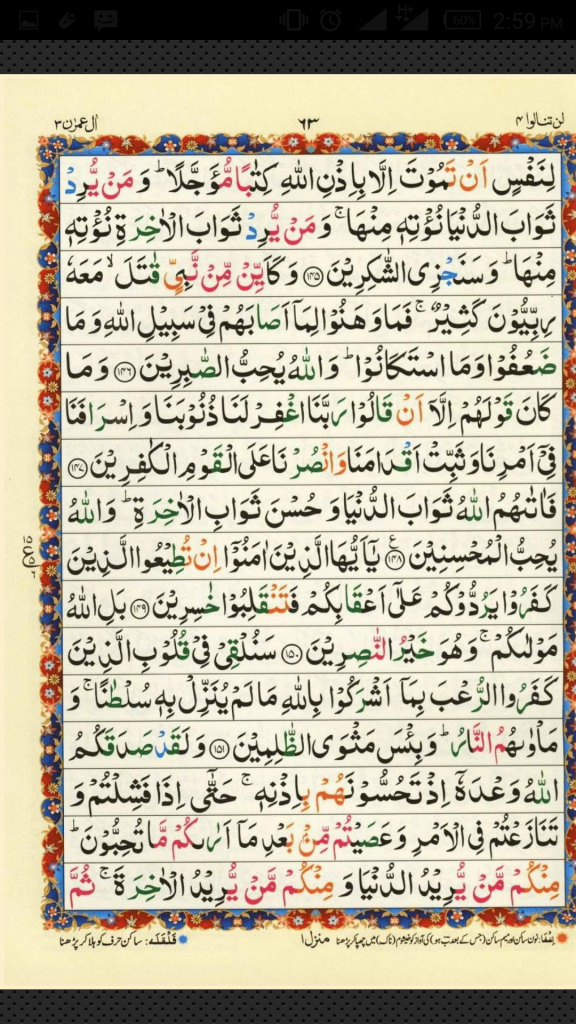 60% 2:59 PM
لن تنالوا ۴ ۶۳ اٰل عمرٰن ۳
لِنَفْسٍ اَنْ تَمُوْتَ اِلَّا بِاِذْنِ اللّٰهِ كِتٰبًا مُّؤَجَّلًا ؕ وَ مَنْ يُّرِدْ
ثَوَابَ الدُّنْيَا نُؤْتِهٖ مِنْهَا ۚ وَ مَنْ يُّرِدْ ثَوَابَ الْاٰخِرَةِ نُؤْتِهٖ
مِنْهَا ؕ وَ سَنَجْزِى الشّٰكِرِيْنَ ﴿۱۴۵﴾ وَ كَاَيِّنْ مِّنْ نَّبِىٍّ قٰتَلَ ۙ مَعَهٗ
رِبِّيُّوْنَ كَثِيْرٌ ۚ فَمَا وَهَنُوْا لِمَاۤ اَصَابَهُمْ فِىْ سَبِيْلِ اللّٰهِ وَ مَا
ضَعُفُوْا وَ مَا اسْتَكَانُوْا ؕ وَ اللّٰهُ يُحِبُّ الصّٰبِرِيْنَ ﴿۱۴۶﴾ وَ مَا
كَانَ قَوْلَهُمْ اِلَّاۤ اَنْ قَالُوْا رَبَّنَا اغْفِرْ لَنَا ذُنُوْبَنَا وَ اِسْرَافَنَا
فِىْۤ اَمْرِنَا وَ ثَبِّتْ اَقْدَامَنَا وَ انْصُرْنَا عَلَى الْقَوْمِ الْكٰفِرِيْنَ ﴿۱۴۷﴾
فَاٰتٰٮهُمُ اللّٰهُ ثَوَابَ الدُّنْيَا وَ حُسْنَ ثَوَابِ الْاٰخِرَةِ ؕ وَ اللّٰهُ
يُحِبُّ الْمُحْسِنِيْنَ ﴿۱۴۸﴾ يٰۤاَيُّهَا الَّذِيْنَ اٰمَنُوْۤا اِنْ تُطِيْعُوا الَّذِيْنَ
كَفَرُوْا يَرُدُّوْكُمْ عَلٰٓى اَعْقَابِكُمْ فَتَنْقَلِبُوْا خٰسِرِيْنَ ﴿۱۴۹﴾ بَلِ اللّٰهُ
مَوْلٰٮكُمْ ۚ وَ هُوَ خَيْرُ النّٰصِرِيْنَ ﴿۱۵۰﴾ سَنُلْقِىْ فِىْ قُلُوْبِ الَّذِيْنَ
كَفَرُوا الرُّعْبَ بِمَاۤ اَشْرَكُوْا بِاللّٰهِ مَا لَمْ يُنَزِّلْ بِهٖ سُلْطٰنًا ۚ وَ
مَاْوٰٮهُمُ النَّارُ ؕ وَ بِئْسَ مَثْوَى الظّٰلِمِيْنَ ﴿۱۵۱﴾ وَ لَقَدْ صَدَقَكُمُ
اللّٰهُ وَعْدَهٗۤ اِذْ تَحُسُّوْنَهُمْ بِاِذْنِهٖ ۚ حَتّٰۤى اِذَا فَشِلْتُمْ وَ
تَنَازَعْتُمْ فِى الْاَمْرِ وَ عَصَيْتُمْ مِّنْۢ بَعْدِ مَاۤ اَرٰٮكُمْ مَّا تُحِبُّوْنَ ؕ
مِنْكُمْ مَّنْ يُّرِيْدُ الدُّنْيَا وَ مِنْكُمْ مَّنْ يُّرِيْدُ الْاٰخِرَةَ ۚ ثُمَّ
منزل ۱
قَلْقَلَه: ساکن حرف کو ہلا کر پڑھنا